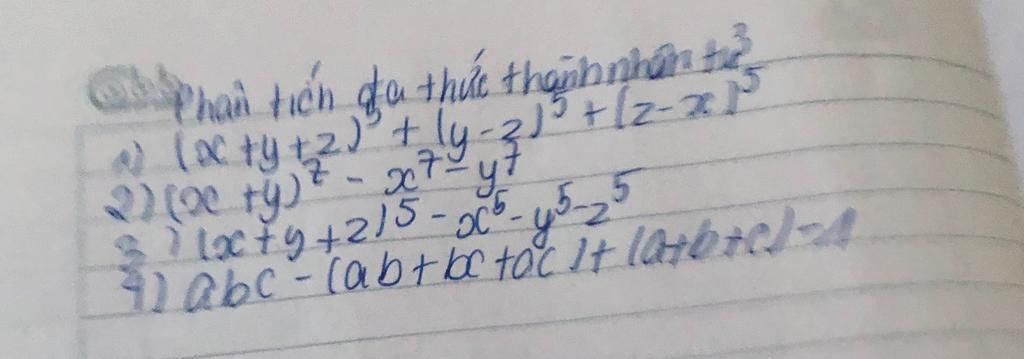 Phân tích đa thức thành nhân tử
1) (x+y+z)⁵ + (y-z)⁵ + (z-x)⁵
2) (x+y)⁷ - x⁷ - y⁷
3) (x+y+z)⁵ - x⁵ - y⁵ - z⁵
4) abc - (ab+bc+ac) + (a+b+c) - 1